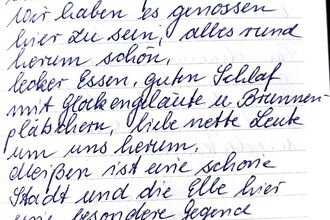 wir haben es genossen
hier zu sein, alles rund
herum schön,
lecker Essen, guten Schlaf
mit Glockengeläute u Brunnen-
plätschern, liebe nette Leute
um uns herum,
Meißen ist eine schöne
Stadt und die Elbe hier
eine besondere Gegend